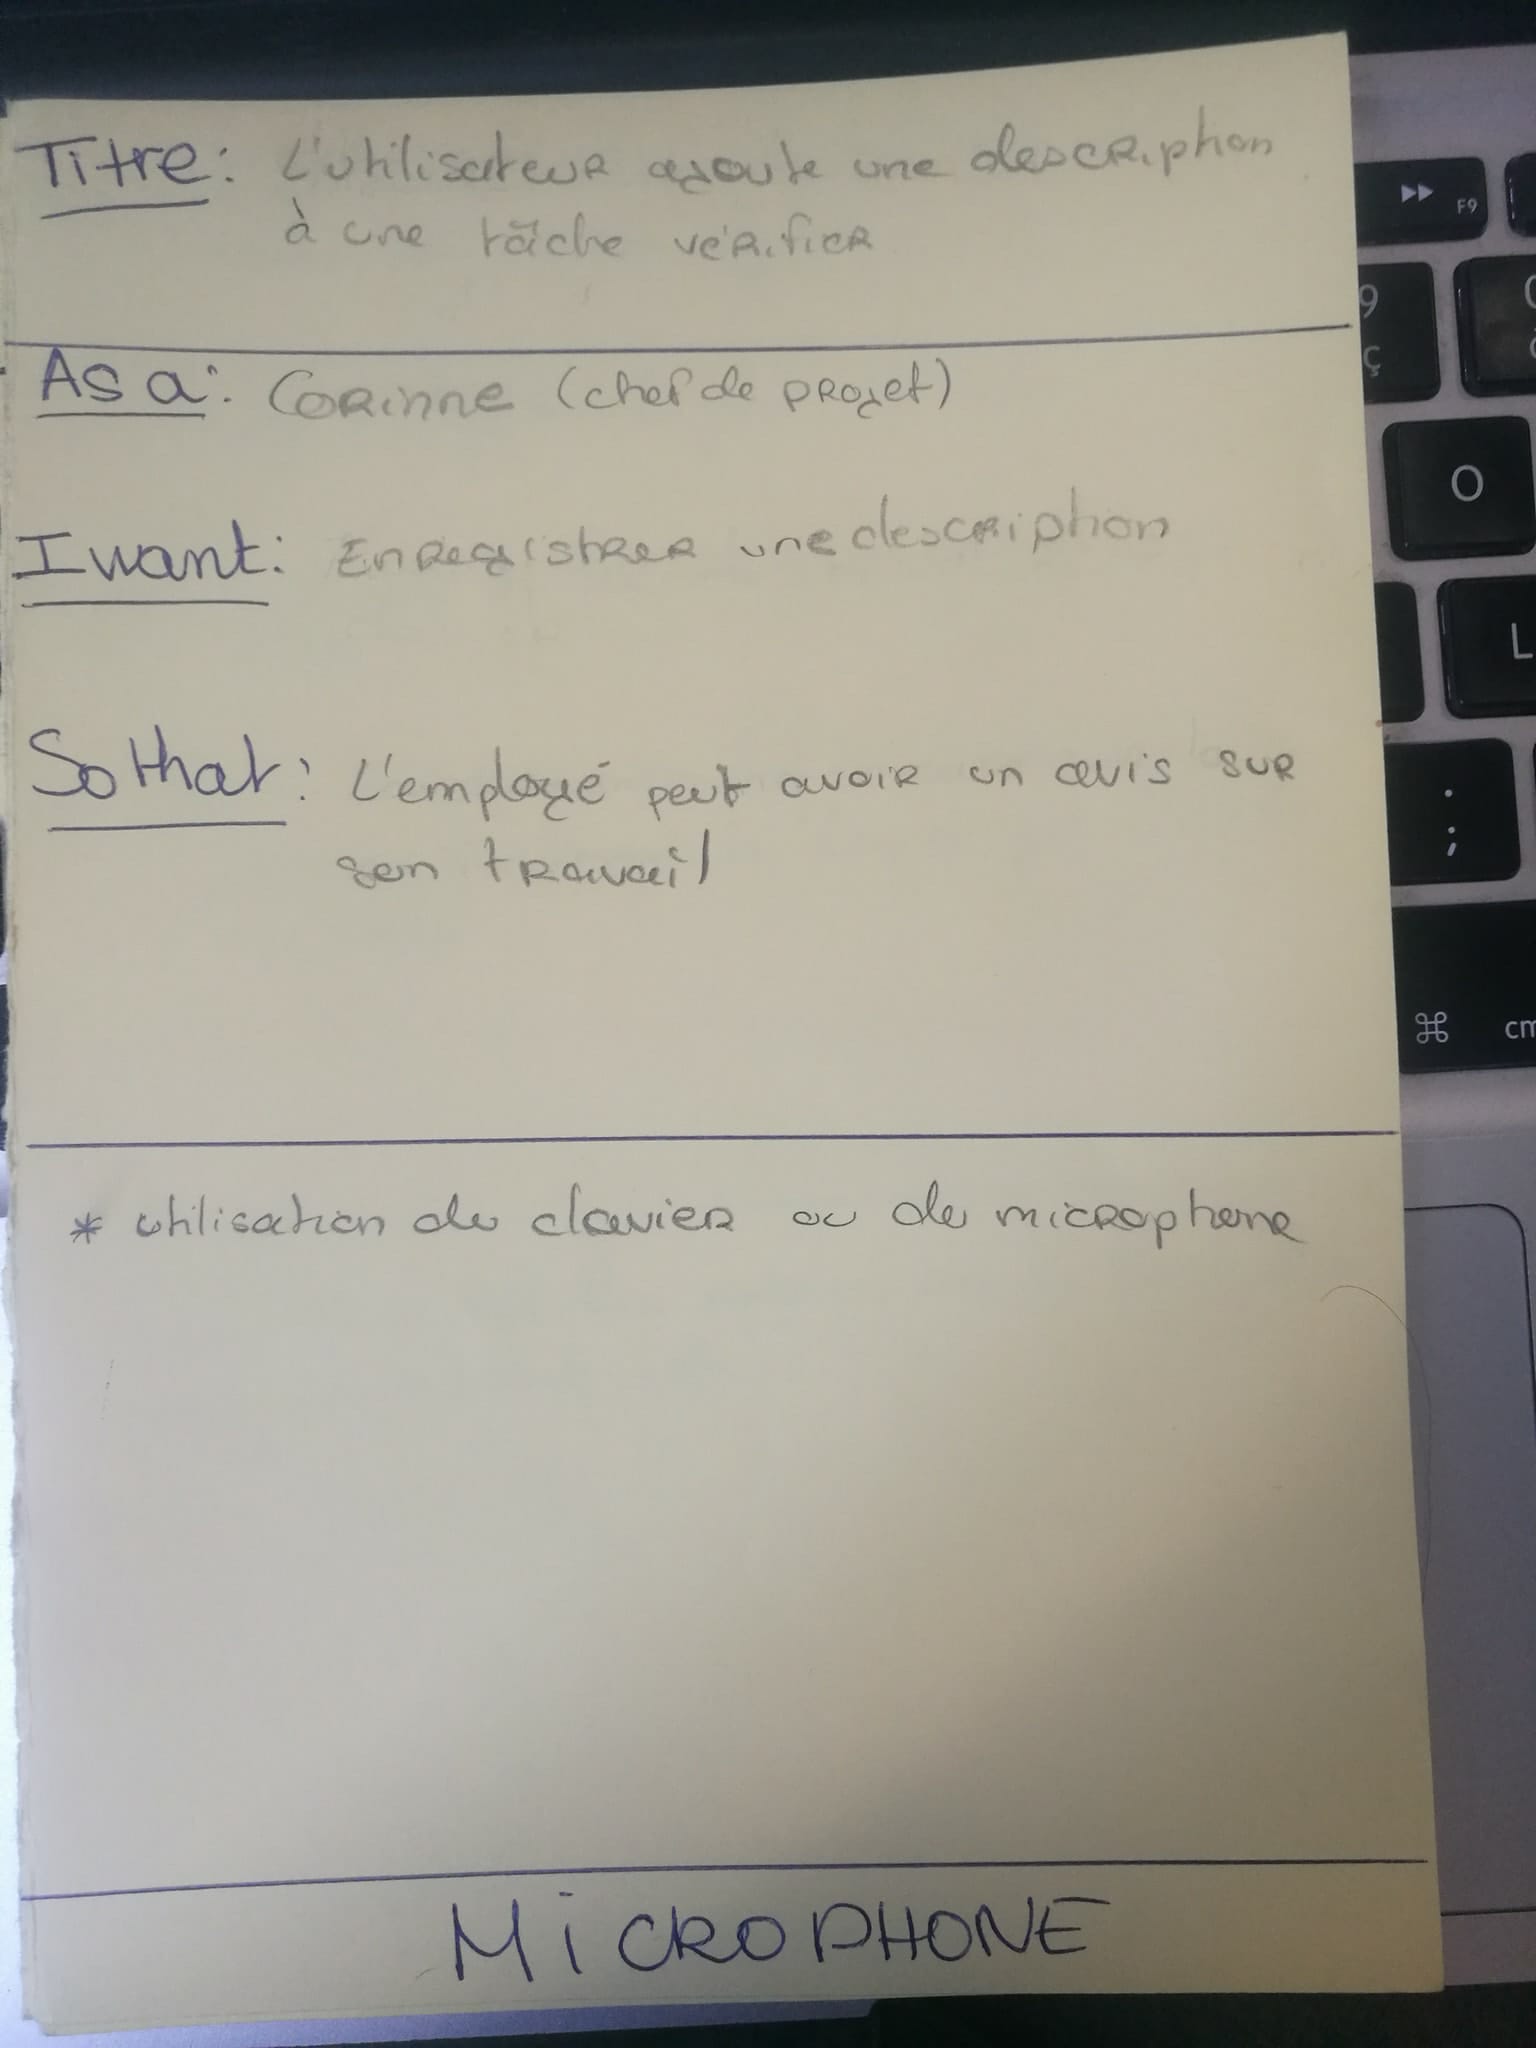 Titre: L'utilisateur ajoute une description
à une tâche vérifier
As a: Corinne (chef de projet)
I want: Enregistrer une description
So that: L'employé peut avoir un avis sur
son travail
* utilisation du clavier ou du microphone
MiCROPHONE
F9
9
ç
O
L
.
;
⌘ cm